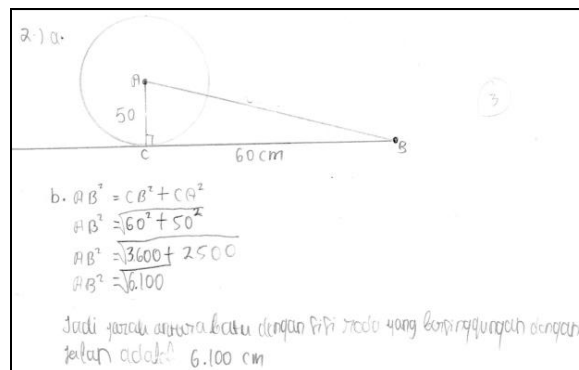 2.) a.
A
3
50
C
B
60 cm
b. AB² = CB² + CA²
AB² = √60² + 50²
AB² = √3.600 + 2500
AB² = √6.100
Jadi jarak antara batu dengan sisi roda yang bersinggungan dengan
jalan adalah 6.100 cm